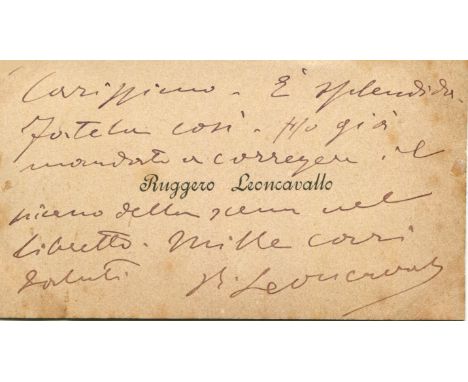 Carissimo. È splendida.
Fatela così. Ho già
mandato a corregere il
Ruggero Leoncavallo
piano della scena nel
libretto. Mille cari
saluti. R. Leoncavallo